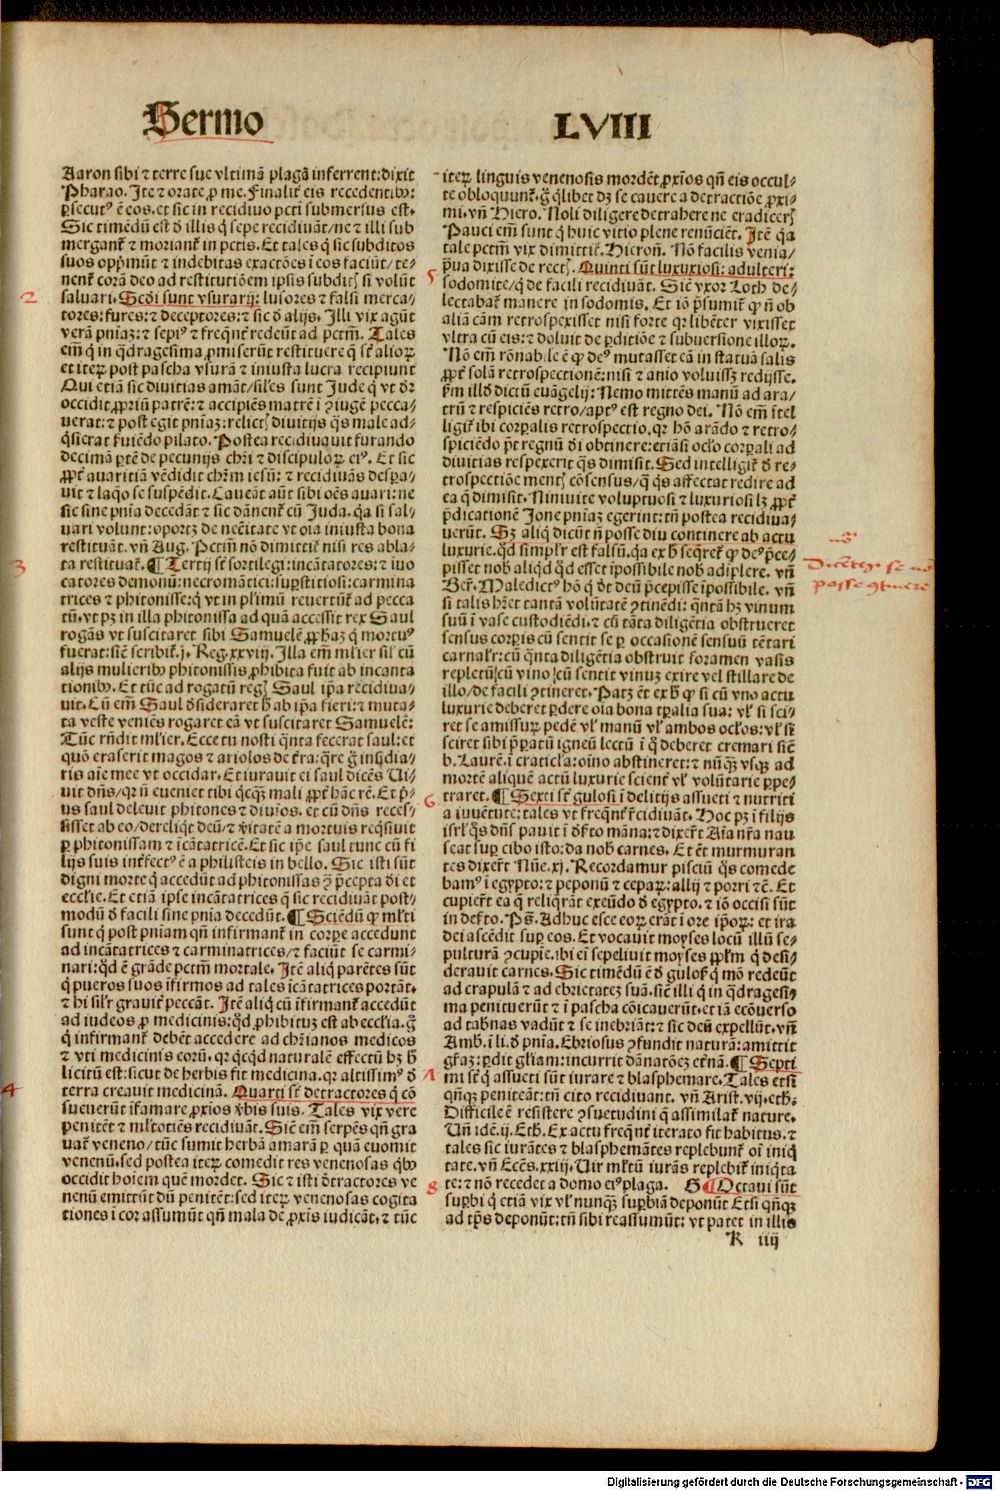 Sermo
LVIII
Aaron sibi ⁊ terre sue vltimā plagā inferrent: dixit
Pharao. Ite ⁊ orate ꝓ me. Finalit̄ eis recedentibꝰ:
ꝑsecutꝰ ē eos. et sic in recidiuo pcti submersus est.
Sic timēdū est đ illis q̄ sepe recidiuāt/ ne ⁊ illi sub
mergant̄ ⁊ moriant̄ in pctis. Et tales q̄ sic subditos
suos opp̄mūt ⁊ indebitas exactōes ī eos faciūt/ te⸗
nent̄ corā deo ad restitutiōem ipsis subditꝭ si volūt
saluari. Scđi sunt vsurarij: lusores ⁊ falsi merca⸗
tores: fures: ⁊ deceptores: ⁊ sic đ alijs. Illi vix agūt
verā pniaꝫ: ⁊ sepiꝰ ⁊ freq̄nt̄ redeūt ad pctm̄. Tales
em̄ q̄ in q̄dragesima ꝓmiserūt restituere q̄ st̄ alioꝝ
et iteꝝ post pascha vsurā ⁊ iniusta lucra recipiunt
Qui etiā sic diuitias amāt/ siłes sunt Jude q̄ vt đr
occidit ꝓpriū patrē: ⁊ accipiēs matrē ī ꝯiugē pecca⸗
uerat: ⁊ post egit pniaꝫ: relictꝭ diuitijs q̄s male ad⸗
q̄sierat ẜuiēdo pilato. Postea recidiuauit furando
decimā ꝑtē de pecunijs chr̄i ⁊ discipuloꝝ eiꝰ. Et sic
ꝓpt̄ auaritiā vēdidit chr̄m iesū: ⁊ recidiuās despa⸗
uit ⁊ laq̄o se suspēdit. Caueāt aūt sibi oēs auari: ne
sic sine pnia decedāt ⁊ sic dānent̄ cū Juda. q̄a si sal⸗
uari volunt: oportꝫ de nec̄itate vt oīa iniusta bona
restituāt. vn̄ Aug. Pctm̄ nō dimittit̄ nisi res abla⸗
ta restituat̄. ¶ Tertij st̄ sortilegi: incātatores: ⁊ iuo
catores demonū: necromātici: suꝑstitiosi: carmina
trices ⁊ phitonisse: q̄ vt in pl̄imū reuertūt̄ ad pecca
tū. vt pꝫ in illa phitonissa ad quā accessit rex Saul
rogās vt suscitaret sibi Samuelē ꝓphaꝫ q̄ mortuꝰ
fuerat: sic̄ scribit̄. j. Reg. xxviij. Illa em̄ ml̄ier sił cū
alijs mulieribꝰ phitonissis ꝓhibita fuit ab incanta
tionibꝰ. Et tūc ad rogatū regꝭ Saul ip̄a recidiua⸗
uit. Cū em̄ Saul đsideraret ħ ab ip̄a fieri: ⁊ muta⸗
ta veste veniēs rogaret eā vt suscitaret Samuelē:
Tūc rn̄dit ml̄ier. Ecce tu nosti q̄nta fecerat saul: et
quō eraserit magos ⁊ ariolos de t̄ra: q̄re ḡ insidia⸗
ris aīe mee vt occidar. Et iurauit ei saul dicēs Ui⸗
uit dn̄s/ qꝛ n̄ eueniet tibi q̄cq̄ꝫ mali ꝓpt̄ hāc rē. Et p̄⸗
us saul deleuit phitones ⁊ diuīos. et cū dn̄s reces⸗
sisset ab eo/ dereliq̄t deū/ ⁊ v̄itatē a mortuis req̄siuit
ꝑ phitonissam ⁊ īcātatricē. Et sic ip̄e saul tunc cū fi
lijs suis int̄fectꝰ ē a philisteis in bello. Sic isti sūt
digni morte q̄ accedūt ad phitonissas ꝯ p̄cepta đi et
eccl̄ie. Et etiā ipse incātatrices q̄ sic recidiuāt post⸗
modū đ facili sine pnia decedūt. ¶ Sciēdū ꝙ ml̄ti
sunt q̄ post pniam qn̄ infirmant̄ in corꝑe accedunt
ad incātatrices ⁊ carminatrices/ ⁊ faciūt se carmi⸗
nari: qđ ē grāde pctm̄ mortale. Itē aliq̄ parētes sūt
q̄ pueros suos īfirmos ad tales īcātatrices portāt.
⁊ hi sił̄r grauit̄ peccāt. Itē aliq̄ cū īfirmant̄ accedūt
ad iudeos ꝓ medicinis: qđ ꝓhibituꝫ est ab eccl̄ia. ḡ
q̄ infirmant̄ debēt accedere ad chr̄ianos medicos
⁊ vti medicinis eorū. qꝛ q̄cq̄d naturalē effectū hꝫ ħ
licitū est: sicut de herbis fit medicina. qꝛ altissimꝰ đ
terra creauit medicinā. Quarti st̄ detractores q̄ cō
sueuerūt īfamare ꝓxīos v̄bis suis. Tales vix vere
penitēt ⁊ ml̄totiēs recidiuāt. Sic̄ em̄ serpēs qn̄ gra
uat̄ veneno/ tūc sumit herbā amarā ꝑ quā euomit
venenū. sed postea iteꝝ comedit res venenosas q̄bꝰ
occidit hoīem quē mordet. Sic ⁊ isti đtractores ve
nenū emittūt dū penitēt: sed iteꝝ venenosas cogita
tiones ī cor assumūt qn̄ mala de ꝓxīs iudicāt. ⁊ tūc
iteꝝ linguis venenosis mordēt ꝓxīos qn̄ eis occul⸗
te obloquunt̄. ḡ q̄libet dꝫ se cauere a detractiōe ꝓxi⸗
mi. vn̄ Hiero. Noli diligere detrahere ne eradicerꝭ
Pauci em̄ sunt q̄ huic vitio plene renūciēt. Itē q̄a
tale pctm̄ vix dimittit̄. Hieron̄. Nō facilis venia/
p̄ua dixisse de rectꝭ. Quinti sūt luxuriosi: adulteri:
sodomite/ q̄ de facili recidiuāt. Sic̄ vxor Loth de⸗
lectabat̄ manere in sodomis. Et iō p̄sumit̄ ꝙ n̄ ob
aliā cām retrospexisset nisi forte qꝛ libēter vixisset
vltra cū eis: ⁊ doluit de ꝑditiōe ⁊ subuersione illoꝝ.
Nō em̄ rōnabile ē ꝙ deꝰ mutasset eā in statuā salis
ꝓpt̄ solā retrospectionē: nisi ⁊ aīo voluissꝫ redijsse.
ẜm illđ dictū euāgelij: Nemo mittēs manū ad ara/
trū ⁊ respiciēs retro/ aptꝰ est regno dei. Nō em̄ ītel
ligit̄ ibi corꝑalis retrospectio. qꝛ hō arādo ⁊ retro⸗
spiciēdo p̄t regnū đi obtinere: etiāsi oc̄ło corꝑali ad
diuitias respexerit q̄s dimisit. Sed intelligit̄ đ re⸗
trospectiōe mentꝭ cōsensus/ q̄ q̄s affectat redire ad
ea q̄ dimisit. Niniuite voluptuosi ⁊ luxuriosi lꝫ ꝓpt̄
p̄dicationē Jone pniaꝫ egerint: tn̄ postea recidiua⸗
uerūt. Sꝫ aliq̄ dicūt n̄ posse diu continere ab actu
luxurie. qđ simpl̄r est falsū. q̄a ex ħ seq̄ret̄ ꝙ deꝰ p̄ce⸗
pisset nob̄ aliq̄d qđ esset īpossibile nob̄ adīplere. vn̄
Ber̄. Maledictꝰ hō q̄ đt deū p̄cepisse īpossibile. vn̄
si talis hr̄et tantā volūtatē ꝯtinēdi: q̄ntā hꝫ vinum
suū ī vase custodiēdi. ⁊ cū tāta diligētia obstrueret
sensus corꝑis cū sentit se ꝑ occasionē sensuū tētari
carnal̄r: cū q̄nta diligētia obstruit foramen vasis
repletū/ cū vino/ cū sentit vinuꝫ exire vel stillare de
illo/ de facili ꝯtineret. Patꝫ ēt ex ħ ꝙ si cū vno actu
luxurie deberet ꝑdere oīa bona tꝑalia sua: vł si sci⸗
ret se amissuꝝ pedē vł manū vł ambos oc̄łos: vł si
sciret sibi p̄ꝑatū igneū lectū ī q̄ deberet cremari sic̄
b. Laurē. ī craticl̄a: oīno abstineret: ⁊ nūq̄ꝫ vsqꝫ ad
mortē aliquē actū luxurie scient̄ vł volūtarie ꝑpe⸗
traret. ¶ Sexti st̄ gulosi ī delitijs assueti ⁊ nutriti
a iuuētute: tales vt freq̄nt̄ r̄cidiuāt. Hoc pꝫ ī filijs
isrł q̄s dn̄s pauit ī đs̄to māna: ⁊ dixer̄t Aīa nr̄a nau
seat suꝑ cibo isto: da nob̄ carnes. Et ēt murmuran
tes dixer̄t Nūe. xj. Recordamur pisciū q̄s comede
bamꝰ ī egypto: ⁊ peponū ⁊ cepaꝝ: allij ⁊ porri ⁊c̄. Et
cupier̄t ea q̄ reliq̄rāt exeūdo đ egypto. ⁊ iō occisi sūt
in des̄to. Ps̄. Adhuc esce eoꝝ erāt ī ore ip̄oꝝ: et ira
dei ascēdit suꝑ eos. Et vocauit moyses locū illū se⸗
pulturā ꝯcupīe. ibi eī sepeliuit moyses ꝓpłm q̄ desi⸗
derauit carnes. Sic timēdū ē đ gulos̄ q̄ mō redeūt
ad crapulā ⁊ ad ebrietateꝫ suā. sic̄ illi q̄ in q̄dragesi⸗
ma penituerūt ⁊ ī pascha cōicauerūt. et iā ecōuerso
ad tab̄nas vadūt ⁊ se inebriāt: ⁊ sic deū expellūt. vn̄
Amb. ī li. đ pnia. Ebriosus ꝯfundit naturā: amittit
gr̄aꝫ: ꝑdit gl̄iam: incurrit dānatōeꝫ et̄nā. ¶ Septi
mi st̄ q̄ assueti sūt iurare ⁊ blasphemare. Tales etsi
qn̄qꝫ peniteāt: tn̄ cito recidiuant. vn̄ Arist. vij. eth.
Difficile ē resistere ꝯsuetudini q̄ assimilat̄ nature.
Un̄ idē. ij. Eth. Ex actu freq̄nt̄ iterato fit habitus. ⁊
tales sic iurātes ⁊ blasphemātes replebunt̄ oī iniq̄
tate. vn̄ Ecc̄s. xxiij. Uir ml̄tū iurās replebit̄ iniq̄ta
te: ⁊ nō recedet a domo eiꝰ plaga. G ¶ Octaui sūt
suꝑbi q̄ etiā vix vł nunq̄ꝫ suꝑbiā deponūt Etsi qn̄qꝫ
ad tp̄s deponūt: tn̄ sibi reassumūt: vt patet in illis
K iiij
2
3
4
5
6
7
8
Dicētes se nō
posse ꝯtinere
Digitalisierung gefördert durch die Deutsche Forschungsgemeinschaft - DFG